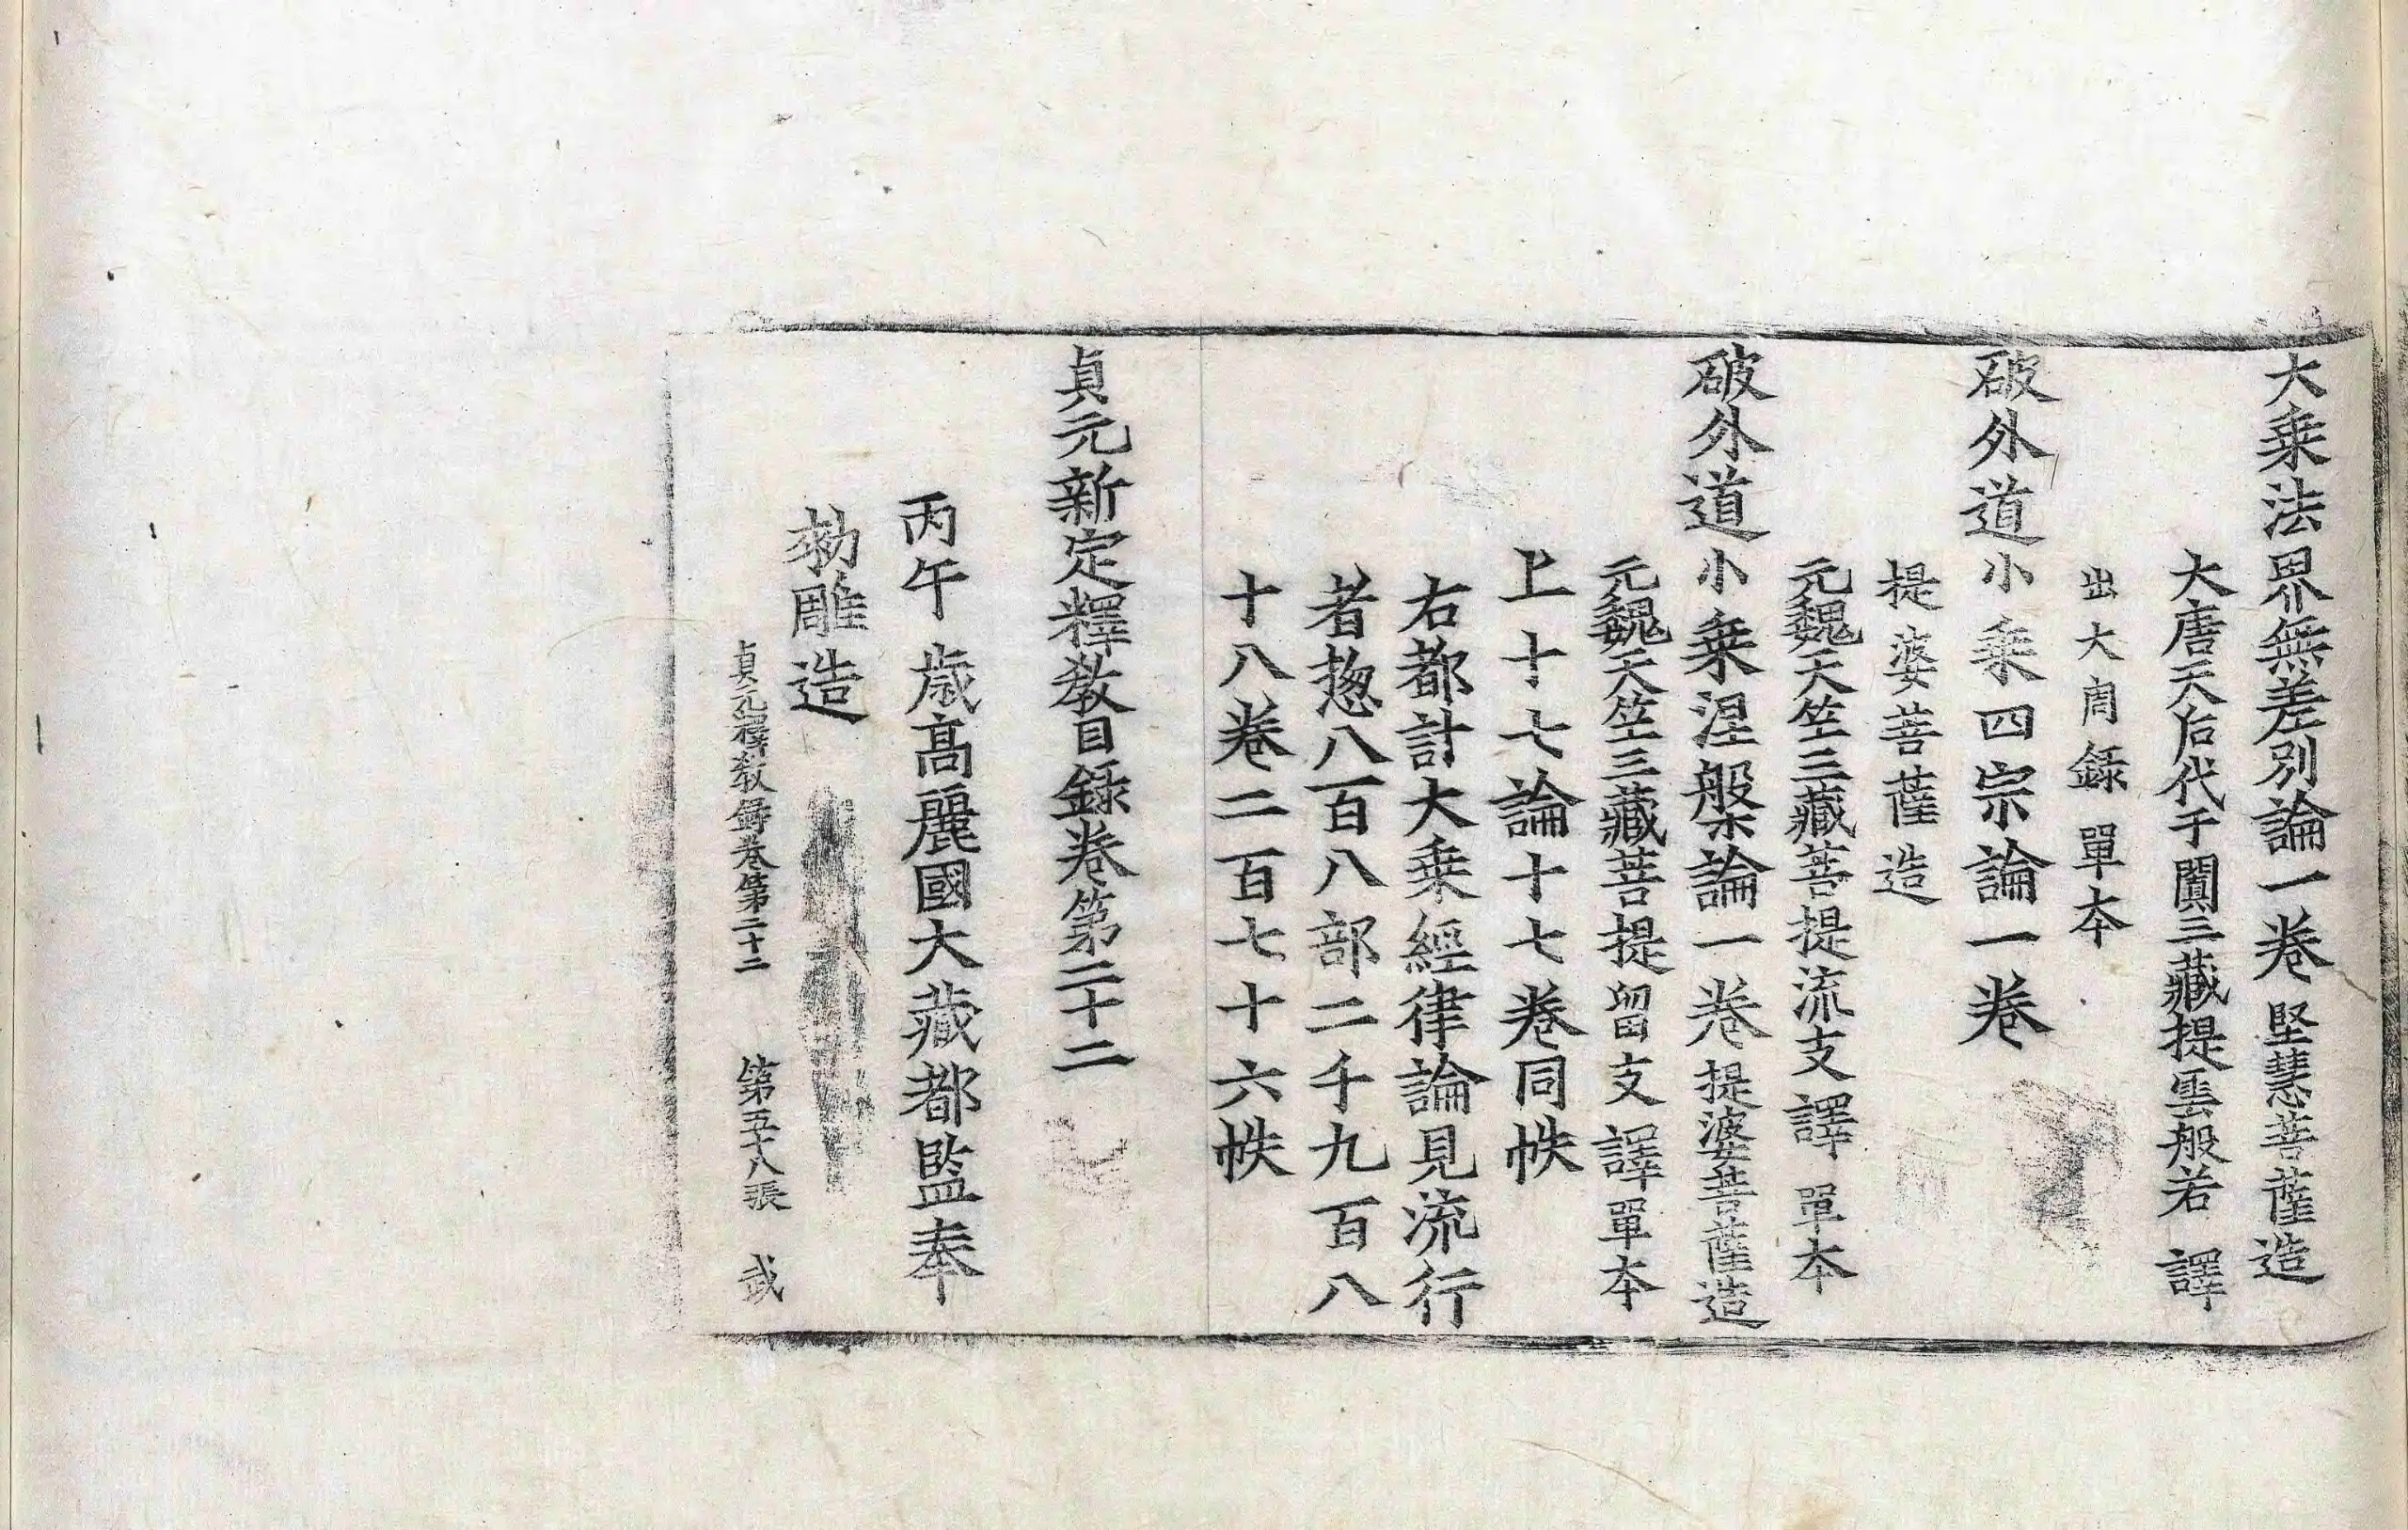 大乗法界無差別論一卷 堅慧菩薩造
大唐天后代于闐三藏提雲般若 譯
出大周錄 單本
破外道小乗四宗論一卷
提婆菩薩造
元魏天竺三藏菩提流支譯 單本
破外道小乗涅槃論一卷 提婆菩薩造
元魏天竺三藏菩提留支譯 單本
上十七論十七卷同帙
右都計大乗經律論見流行
者揔八百八部二千九百八
十八卷二百七十六帙
貞元新定釋教目録卷第二十二
丙午歳髙麗國大藏都監奉
勑雕造
貞元釋教録卷第二十二 第五十八張 武